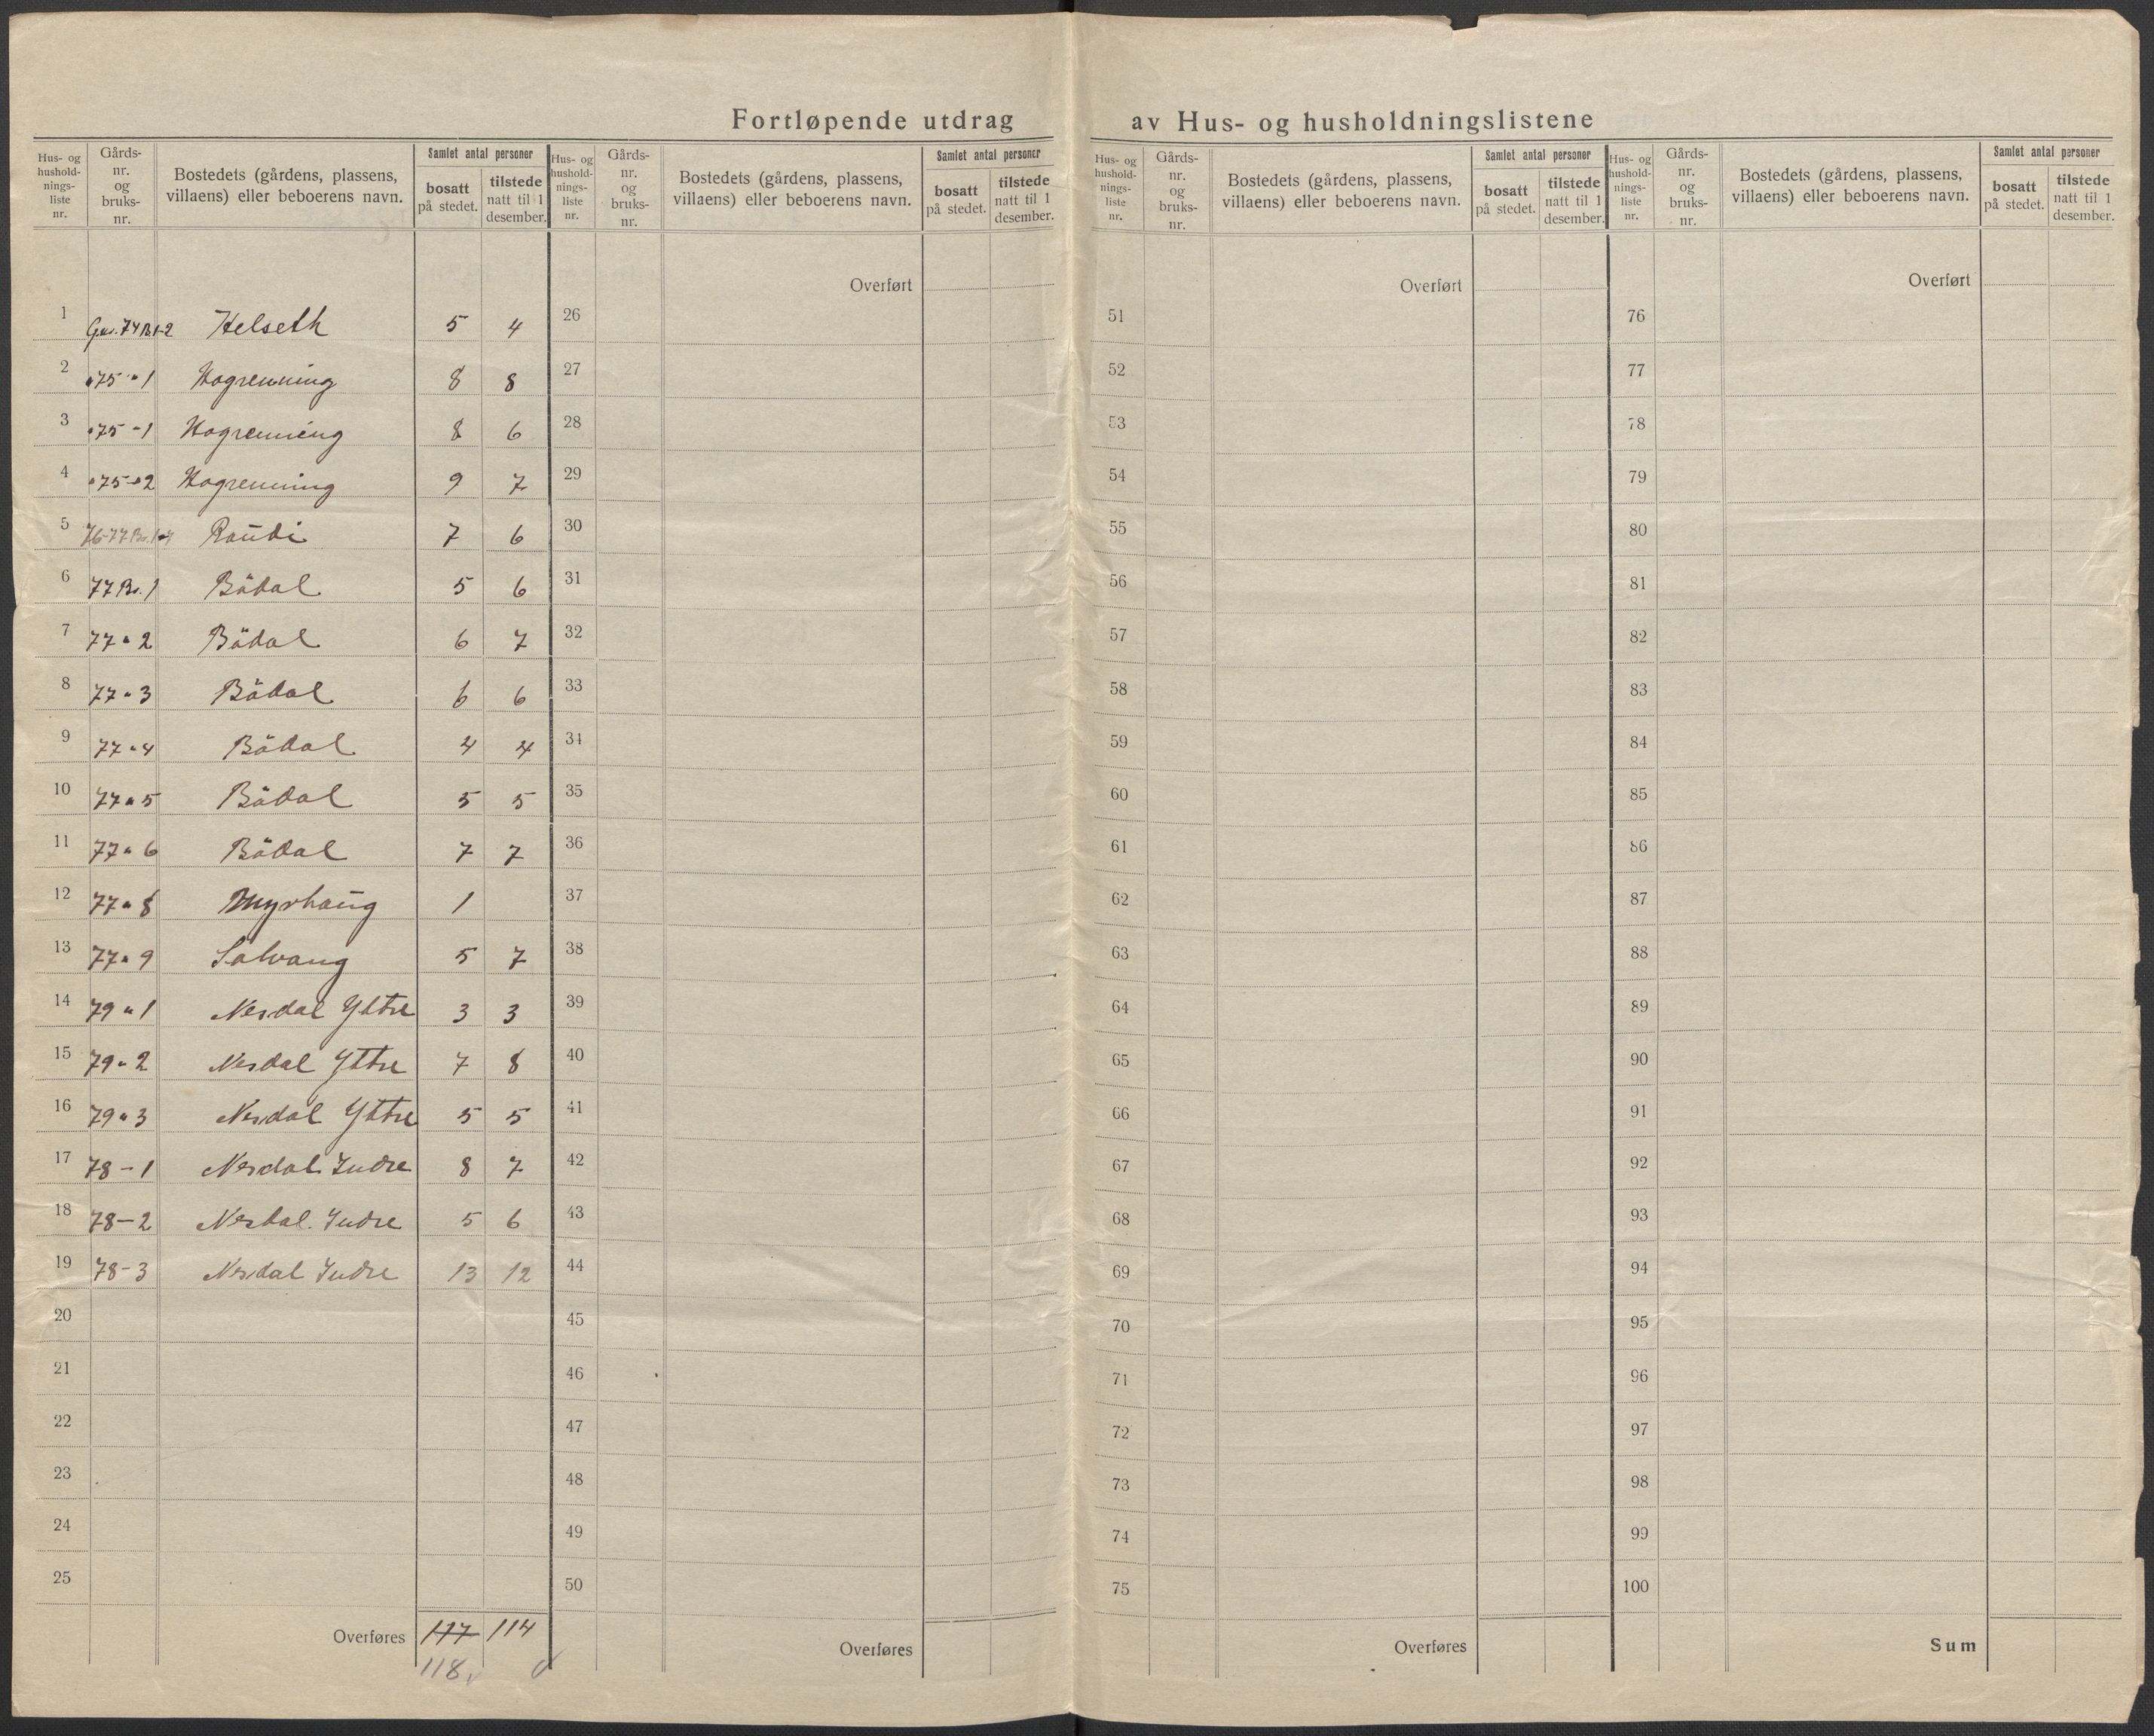 Fortløpende utdrag av Hus- og husholdningslistene
Hus- og husholdnings-liste nr. Gårds-nr. og bruks-nr. Bostedets (gårdens, plassens, villaens) eller beboerens navn. Samlet antal personer bosatt på stedet. tilstede natt til 1 desember.
Hus- og husholdnings-liste nr. Gårds-nr. og bruks-nr. Bostedets (gårdens, plassens, villaens) eller beboerens navn. Samlet antal personer bosatt på stedet. tilstede natt til 1 desember.
Hus- og husholdnings-liste nr. Gårds-nr. og bruks-nr. Bostedets (gårdens, plassens, villaens) eller beboerens navn. Samlet antal personer bosatt på stedet. tilstede natt til 1 desember.
Hus- og husholdnings-liste nr. Gårds-nr. og bruks-nr. Bostedets (gårdens, plassens, villaens) eller beboerens navn. Samlet antal personer bosatt på stedet. tilstede natt til 1 desember.
Overført Overført Overført
1 74 1-2 Helseth 5 4 26 51 76
2 "75 " 1 Hogrenning 8 8 27 52 77
3 "75 - 1 Hogrenning 8 6 28 53 78
4 "75 - 2 Hogrenning 9 7 29 54 79
5 76-77 Br. Raudi 7 6 30 55 80
6 77 Br. 1 Bödal 5 6 31 56 81
7 77 " 2 Bödal 6 7 32 57 82
8 77 " 3 Bödal 6 6 33 58 83
9 77 " 4 Bödal 4 4 34 59 84
10 77 " 5 Bödal 5 5 35 60 85
11 77 " 6 Bödal 7 7 36 61 86
12 77 " 8 Myrhaug 1 37 62 87
13 77 " 9 Solvang 5 7 38 63 88
14 79 " 1 Nesdal Yttre 3 3 39 64 89
15 79 " 2 Nesdal Yttre 7 8 40 65 90
16 79 " 3 Nesdal Yttre 5 5 41 66 91
17 78 - 1 Nesdal Indre 8 7 42 67 92
18 78 - 2 Nesdal. Indre 5 6 43 68 93
19 78 - 3 Nesdal Indre 13 12 44 69 94
20 45 70 95
21 46 71 96
22 47 72 97
23 48 73 98
24 49 74 99
25 50 75 100
Overføres 117 114 Overføres Overføres Sum
118